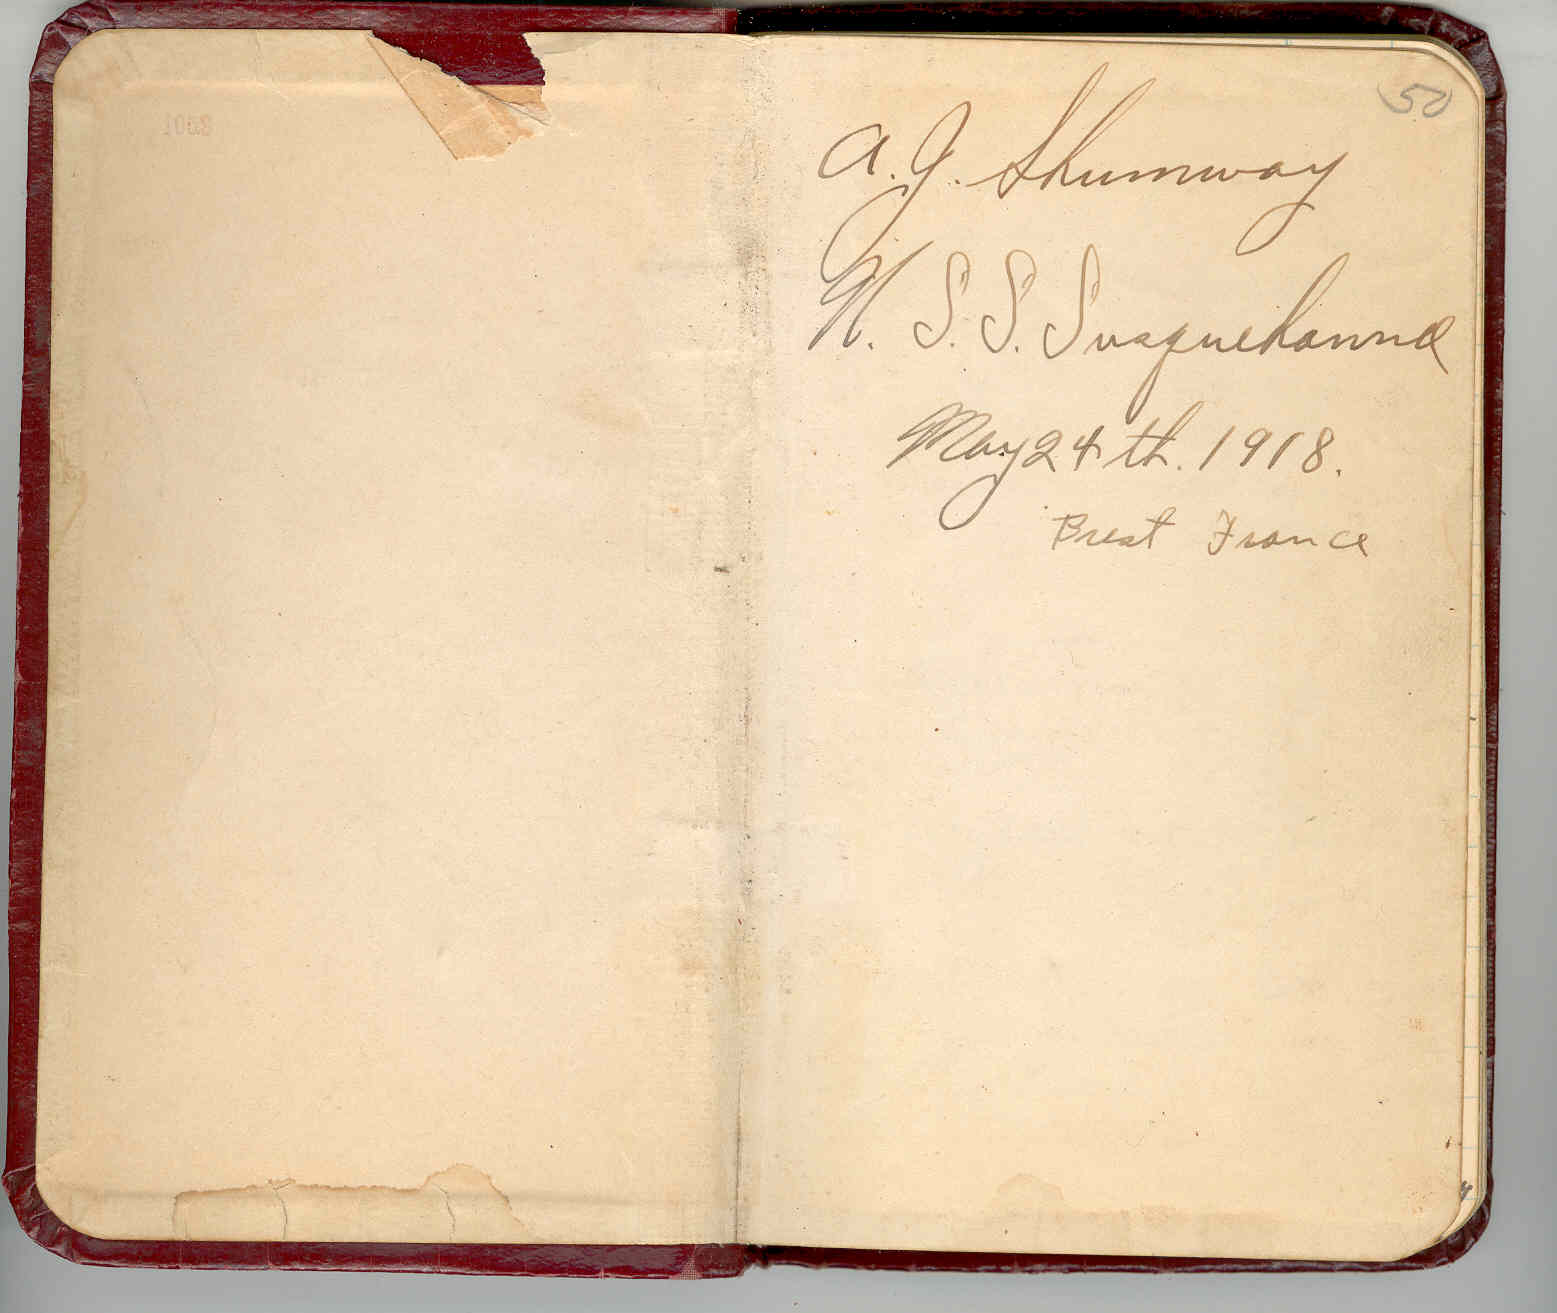 50
A. J. Shumway
U. S. S. Susquehanna
May 24th. 1918.
Brest France